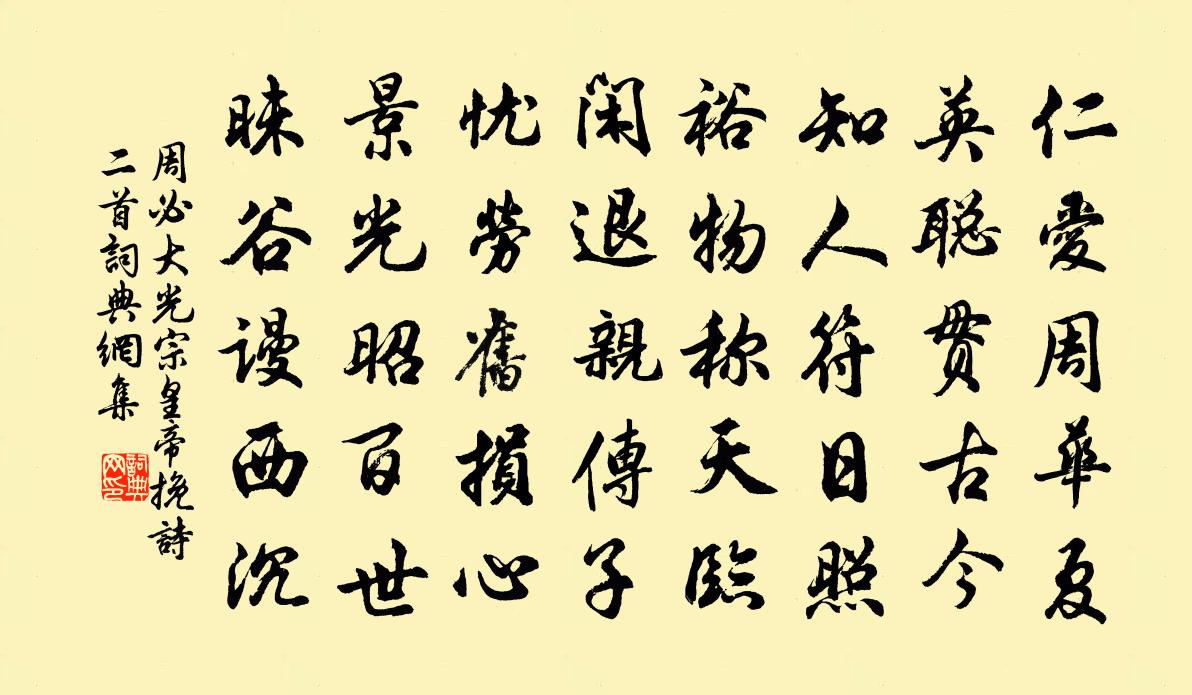 仁愛周華夏
英聪贯古今
知人符日照
裕物称天臨
闲退親傳子
忧劳舊損心
景光昭百世
睐谷谩西沉
周必大光宗皇帝挽詩
二首詞典網集
詞典网印